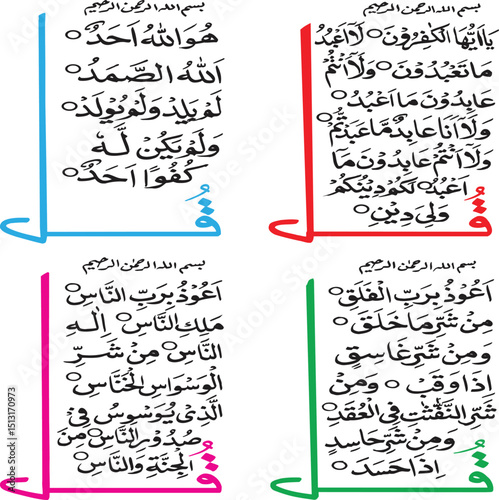 بسم الله الرحمن الرحيم
قُل
يٰاَيُّهَا الْكٰفِرُوْنَ○ لَآ اَعْبُدُ
مَا تَعْبُدُوْنَ○ وَلَآ اَنْتُمْ
عَابِدُوْنَ مَا اَعْبُدُ○
وَلَآ اَنَا عَابِدٌ مَّا عَبَدْتُّمْ○
وَلَآ اَنْتُمْ عَابِدُوْنَ مَا
اَعْبُدُ○ لَكُمْ دِيْنُكُمْ
وَلِيَ دِيْنِ○
بسم الله الرحمن الرحيم
قُل
هُوَ اللّٰهُ اَحَدٌ○
اَللّٰهُ الصَّمَدُ○
لَمْ يَلِدْ وَلَمْ يُوْلَدْ○
وَلَمْ يَكُنْ لَّهٗ
كُفُوًا اَحَدٌ○
بسم الله الرحمن الرحيم
قُل
اَعُوْذُ بِرَبِّ الْفَلَقِ○
مِنْ شَرِّ مَا خَلَقَ○
وَمِنْ شَرِّ غَاسِقٍ
اِذَا وَقَبَ○ وَمِنْ
شَرِّ النَّفّٰثٰتِ فِي الْعُقَدِ○
وَمِنْ شَرِّ حَاسِدٍ
اِذَا حَسَدَ○
بسم الله الرحمن الرحيم
قُل
اَعُوْذُ بِرَبِّ النَّاسِ○
مَلِكِ النَّاسِ○ اِلٰهِ
النَّاسِ○ مِنْ شَرِّ
الْوَسْوَاسِ الْخَنَّاسِ○
الَّذِيْ يُوَسْوِسُ فِيْ
صُدُوْرِ النَّاسِ○ مِنَ
الْجِنَّةِ وَالنَّاسِ○
Adobe Stock | #1513170973